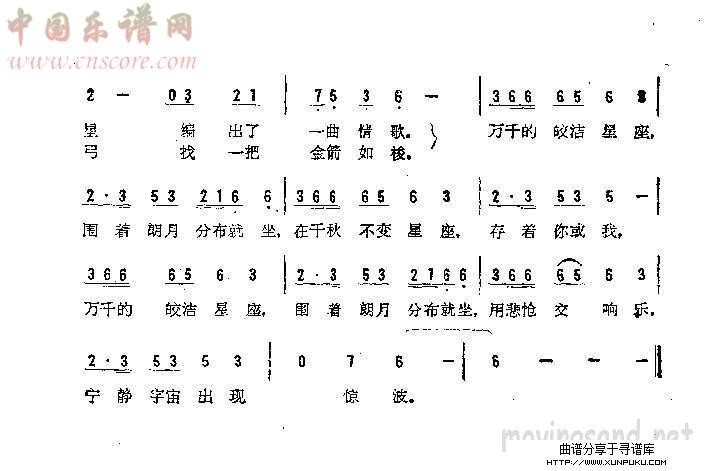 中国乐谱网
www.cnscore.com
2 — 03 21 | 75 3 6 — | 366 65 6 3
星 编出了 一曲情歌。 万千的皎洁星座,
弓 找一把 金箭如梭。
2·3 53 216 6 | 366 65 6 3 | 2·3 53 5 — |
围着朗月分布就坐, 在千秋不变星座, 存着你或我,
366 65 6 3 | 2·3 53 2166 | 366 65 6 3 |
万千的皎洁星座, 围着朗月分布就坐, 用悲怆交响乐,
2·3 53 5 3 | 0 7 6 — | 6 — — — ‖
宁静宇宙出现 惊波。
movingsand.net
曲谱分享于寻谱库
HTTP://WWW.XUNPUKU.COM